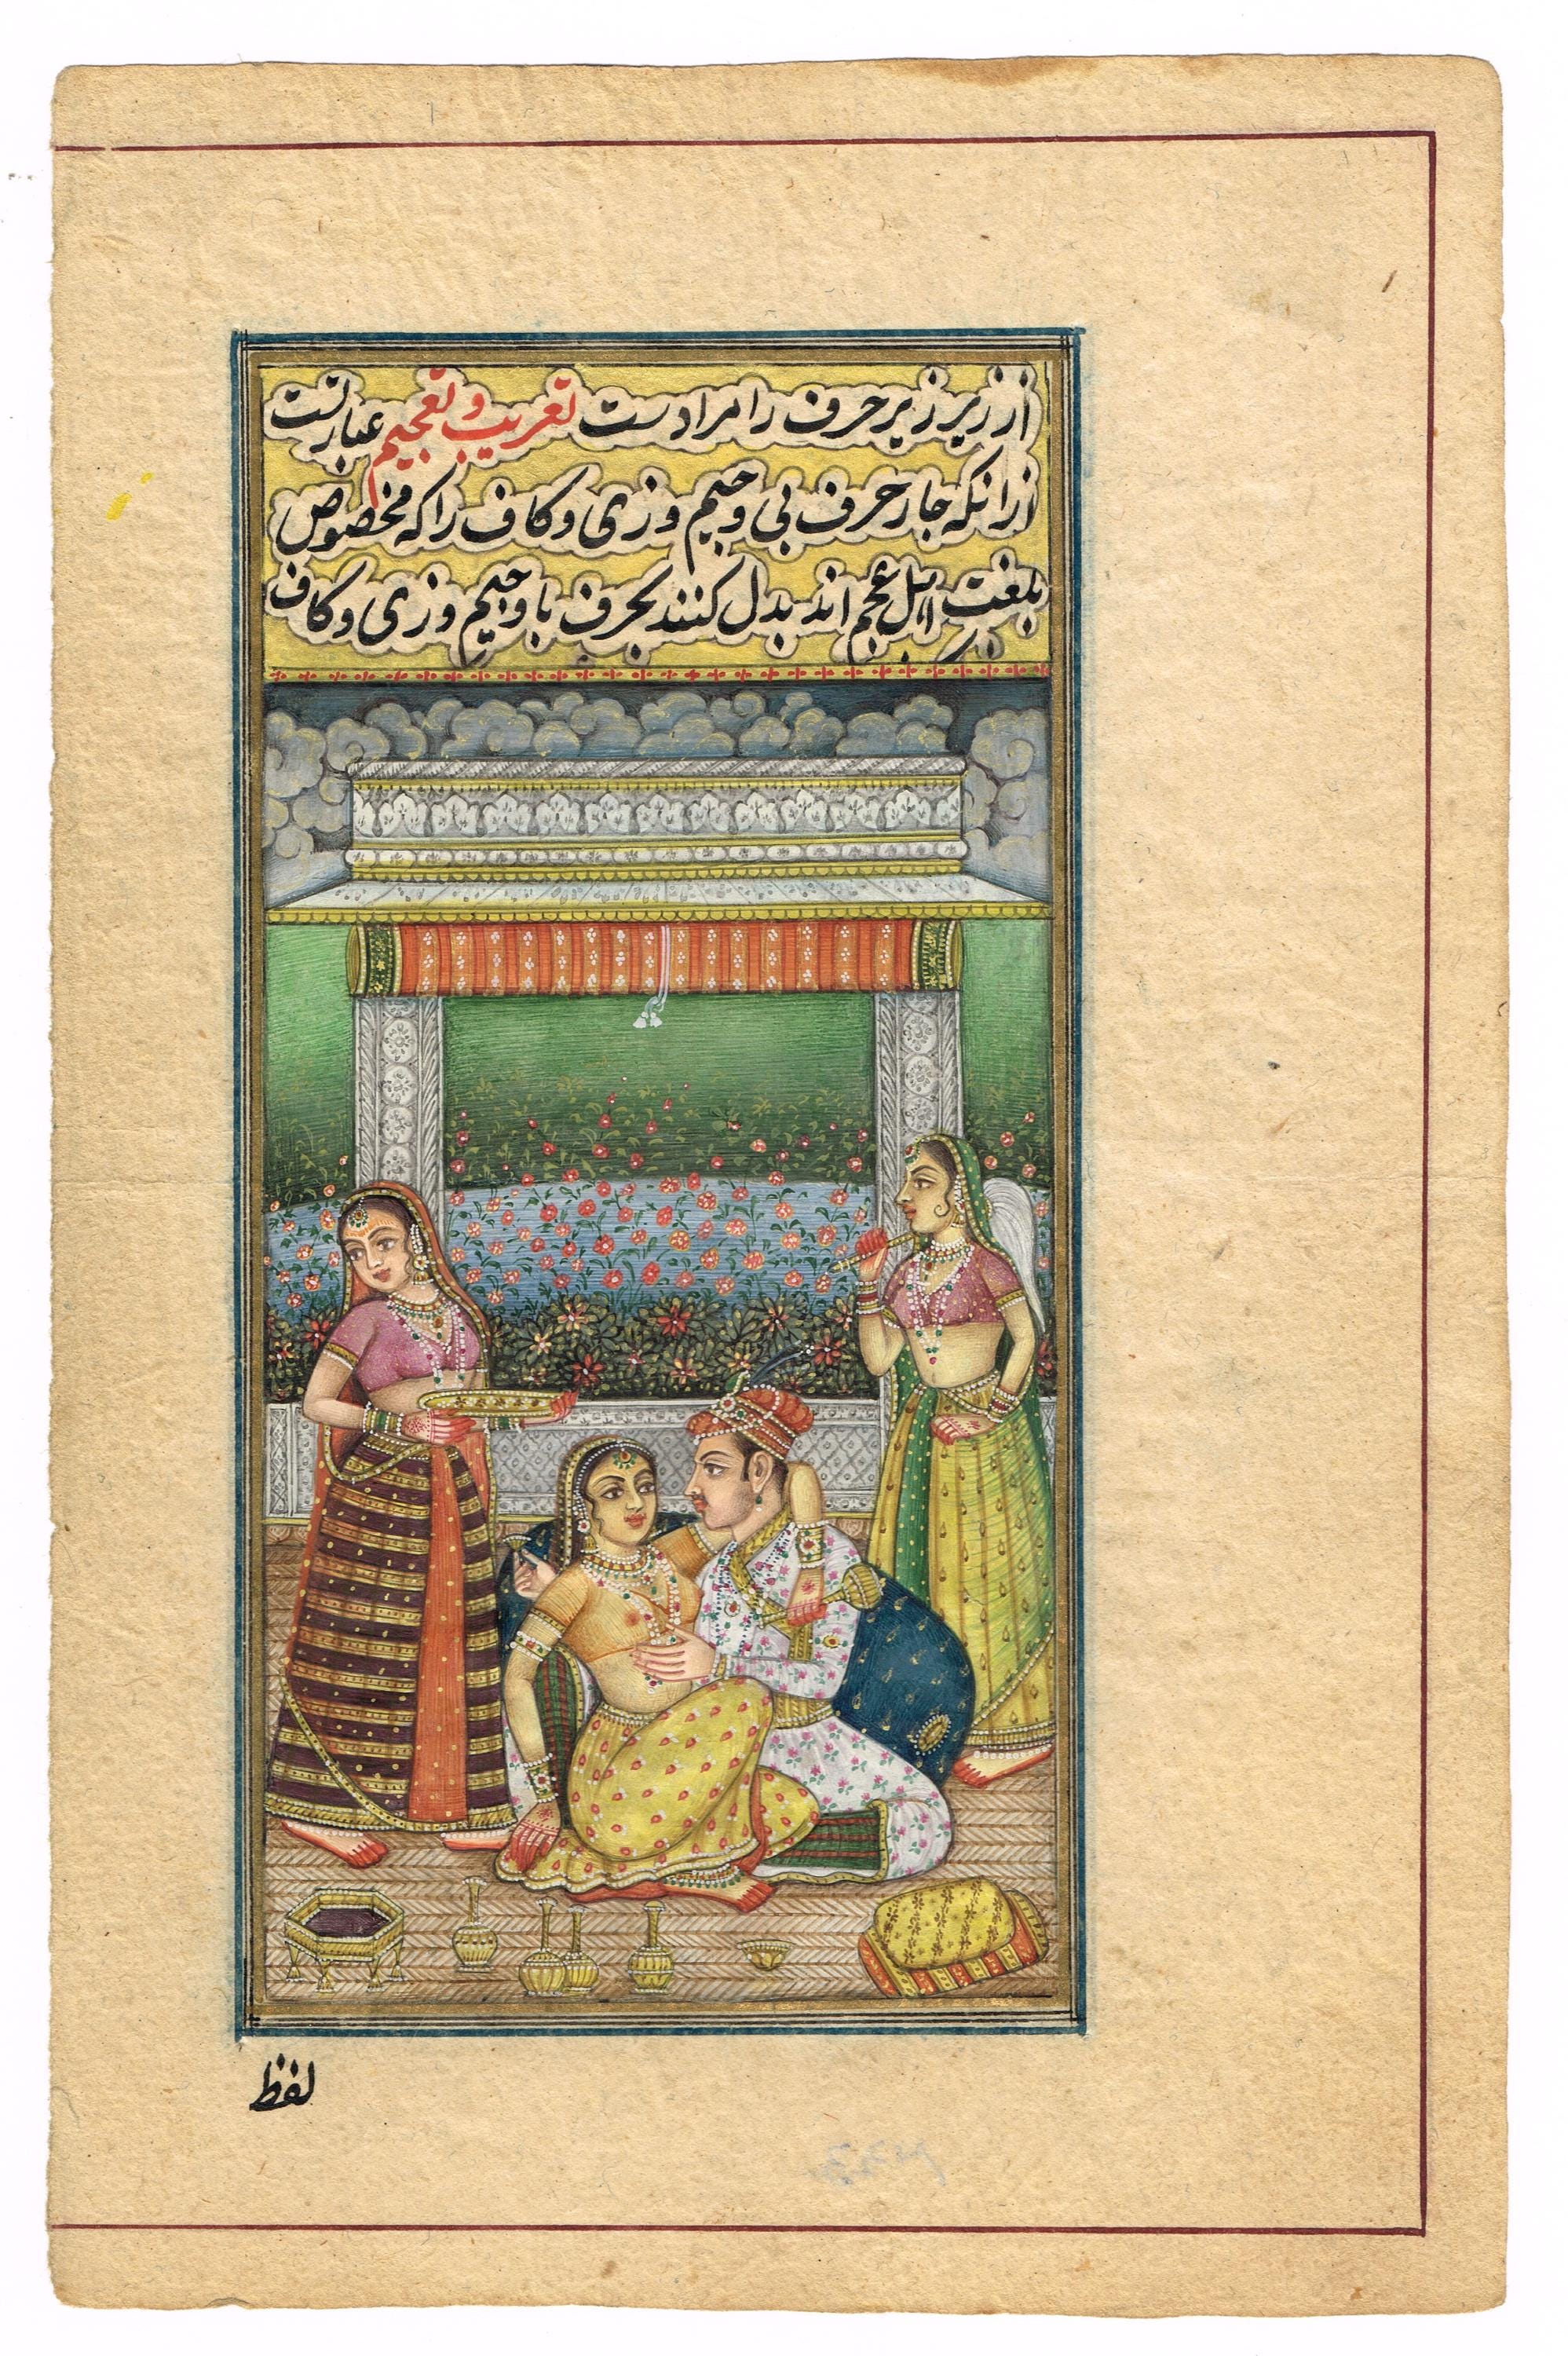 از زیر زیر حرف را مراد ست تعریب و تعجیم عبارتست
ازانکه چار حرف پی و چیم و زی و کاف را که مخصوص
بلغت اہل عجم اند بدل کنند بحرف با و جیم و زی و کاف
لفظ